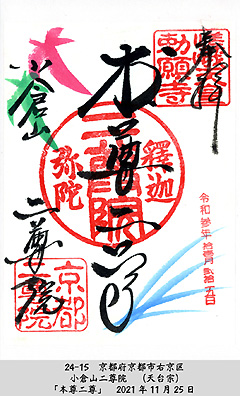 奉拝
嵯峨
勅願寺
小倉山
本尊二尊
釋迦
弥陀
二尊院
令和参年拾壱月弐拾五日
二尊院
京都
二尊院
24-15 京都府京都市右京区
小倉山二尊院 (天台宗)
「本尊二尊」 2021年11月25日